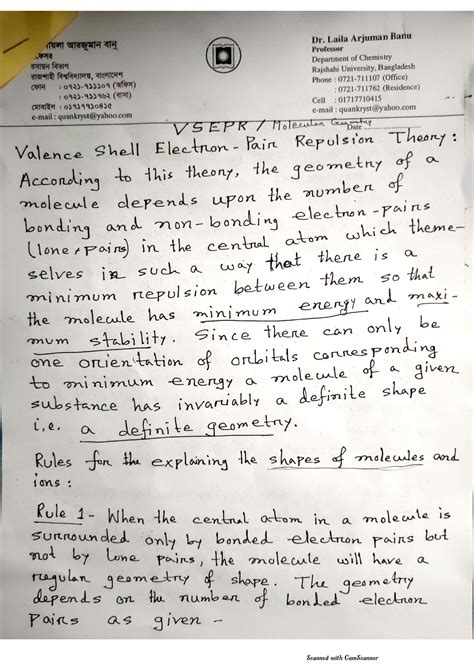 য়লা আরজুমান বানু
ফেসর
রসায়ন বিভাগ
রাজশাহী বিশ্ববিদ্যালয়, বাংলাদেশ
ফোন : ০৭২১-৭১১১০৭ (অফিস)
: ০৭২১-৭১১৭৬২ (বাসা)
মোবাইল : ০১৭১৭৭১০৪১৫
e-mail : quankryst@yahoo.com
Dr. Laila Arjuman Banu
Professor
Department of Chemistry
Rajshahi University, Bangladesh
Phone : 0721-711107 (Office)
: 0721-711762 (Residence)
Cell : 01717710415
e-mail : quankryst@yahoo.com
Date
VSEPR / Molecular Geometry
Valence Shell Electron-Pair Repulsion Theory:
According to this theory, the geometry of a
molecule depends upon the number of
bonding and non-bonding electron-pairs
(lone pairs) in the central atom which theme-
selves in such a way that there is a
minimum repulsion between them so that
the molecule has minimum energy and maxi-
mum stability. Since there can only be
one orientation of orbitals corresponding
to minimum energy a molecule of a given
substance has invariably a definite shape
i.e. a definite geometry.
Rules for the explaining the shapes of molecules and
ions :
Rule 1- When the central atom in a molecule is
surrounded only by bonded electron pairs but
not by lone pairs, the molecule will have a
regular geometry of shape. The geometry
depends on the number of bonded electron
pairs as given -
Scanned with CamScanner